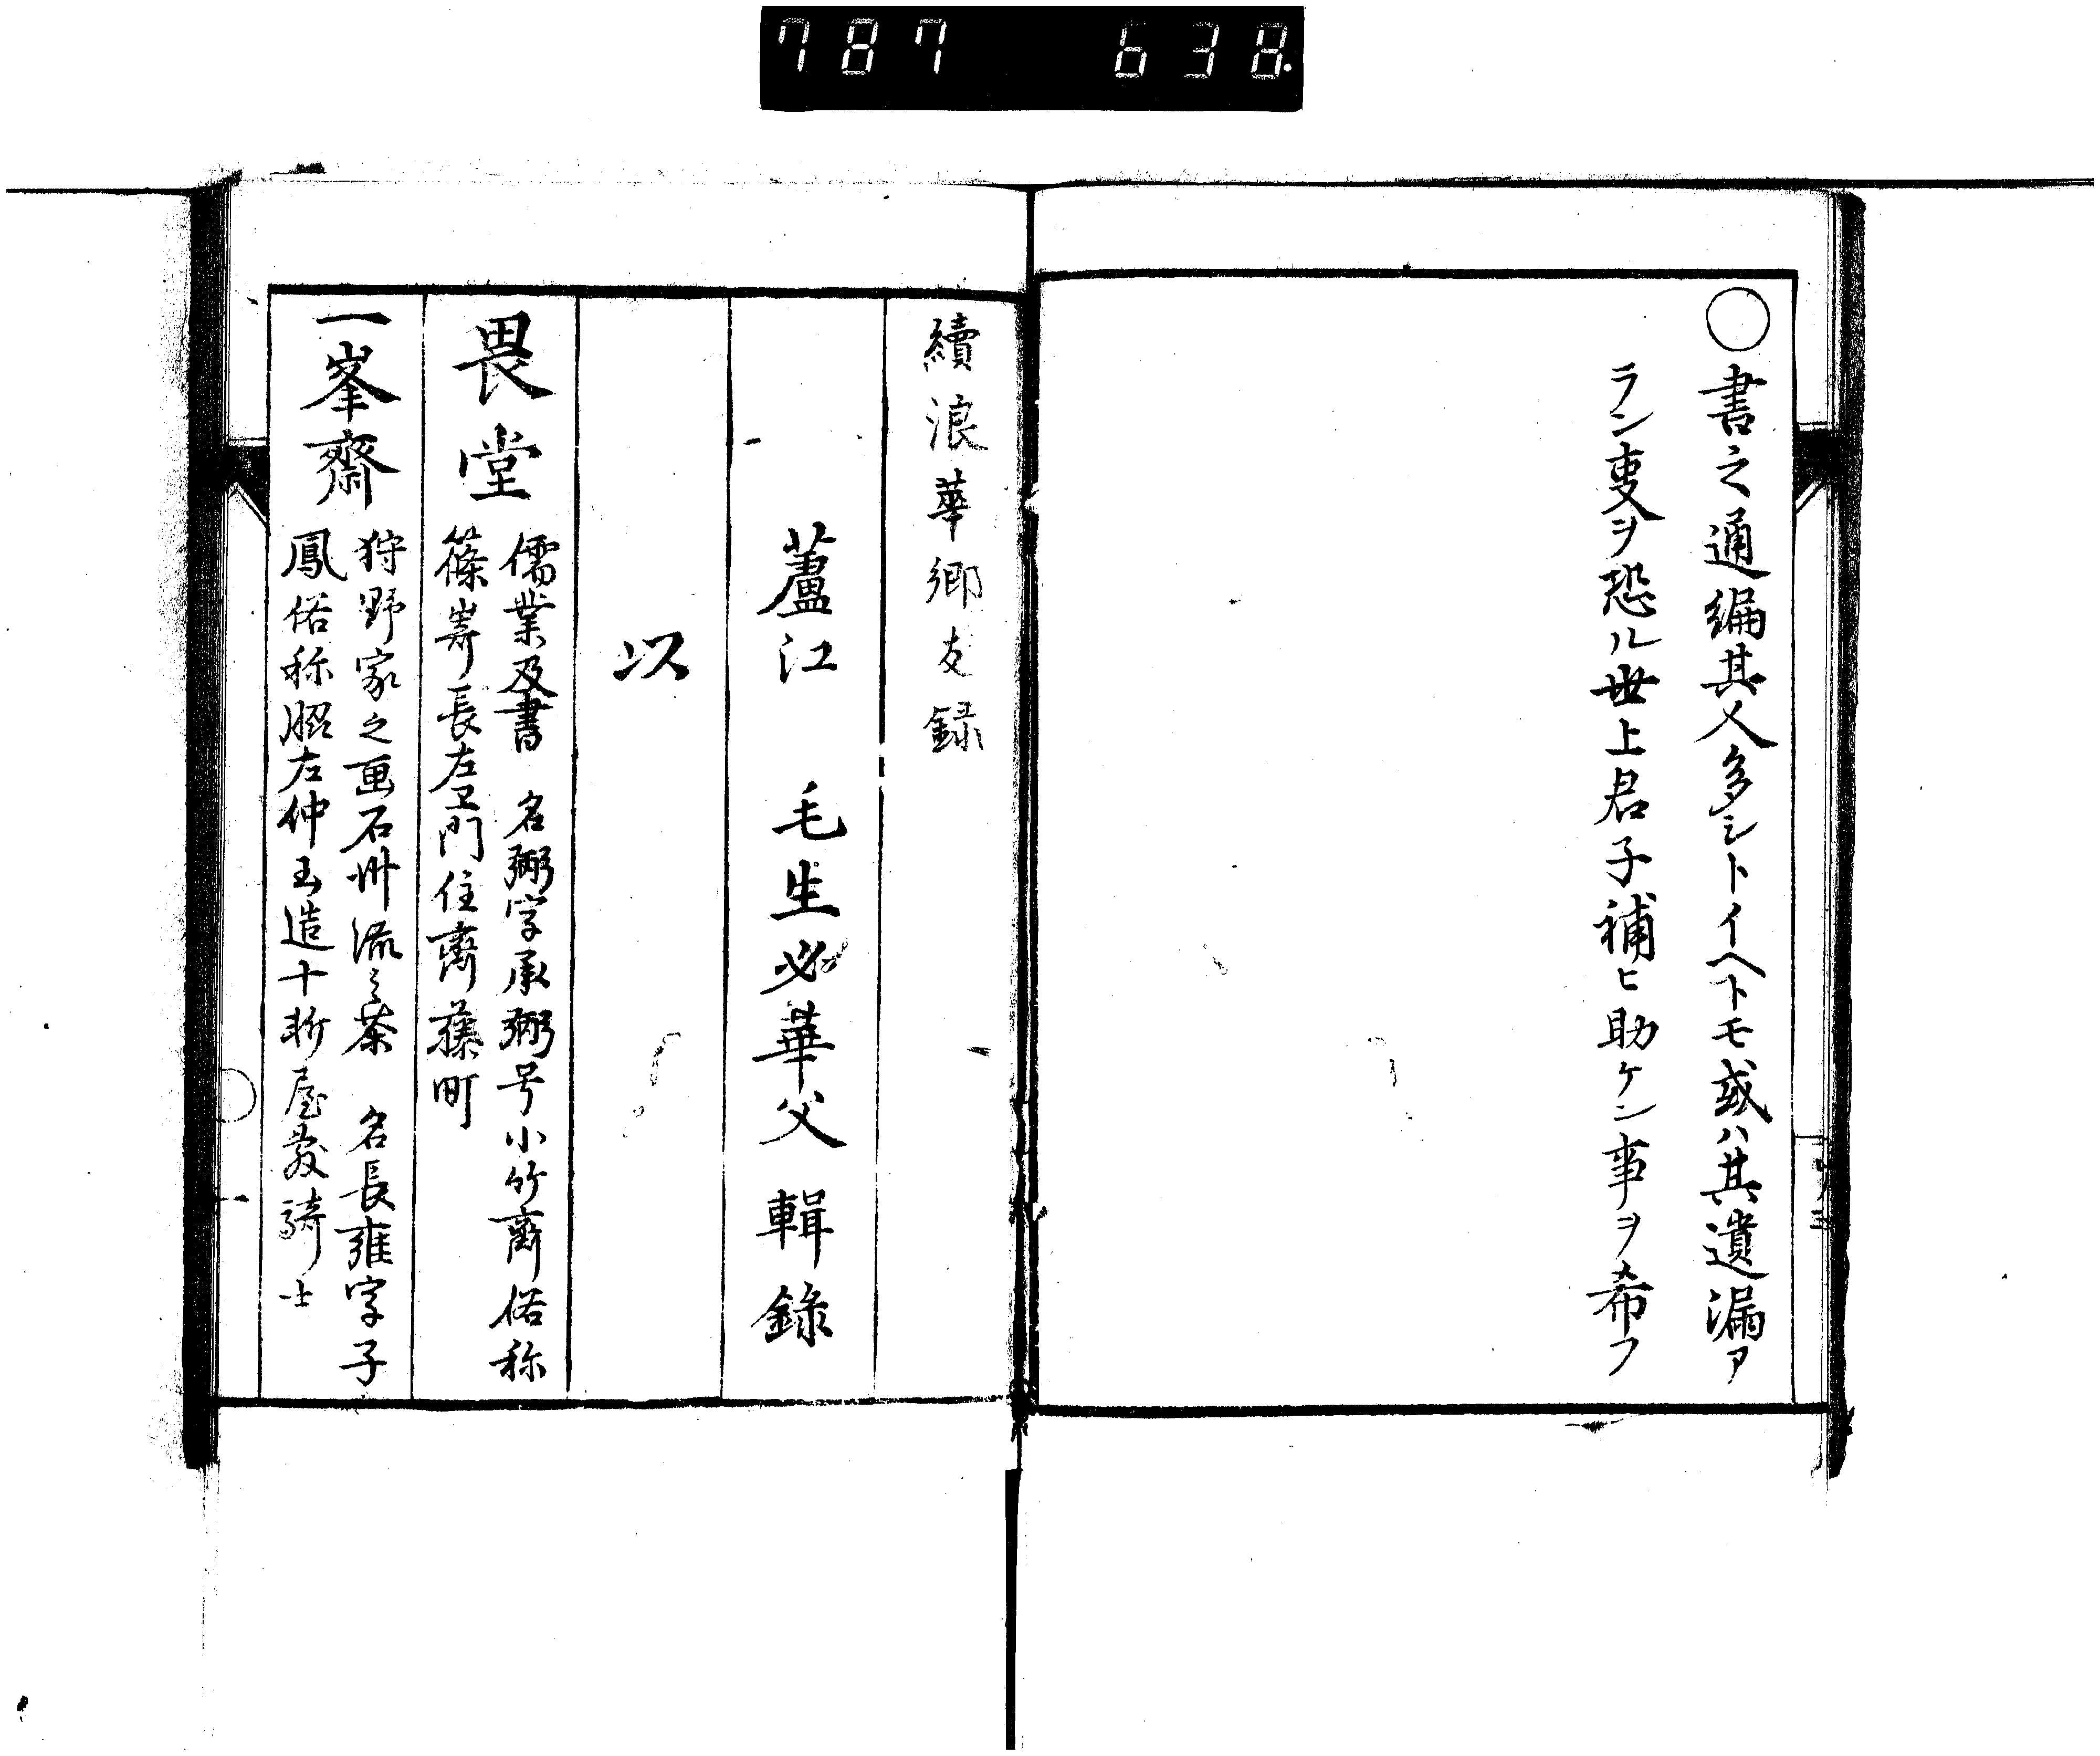 787 638.
○書之通編其人多シトイヘトモ或ハ其遺漏ア
ラン叓ヲ恐ル世上君子補ヒ助ケン事ヲ希フ
續浪華郷友録
蘆江 毛生必華父 輯録
以
畏堂
儒業及書 名弼字承弼号小竹齋俗称
篠嵜長左卫門住齋藤町
一峯齋
狩野家之画石州流之茶 名長雍字子
鳳俗称 左仲玉造十軒屋 騎士
一